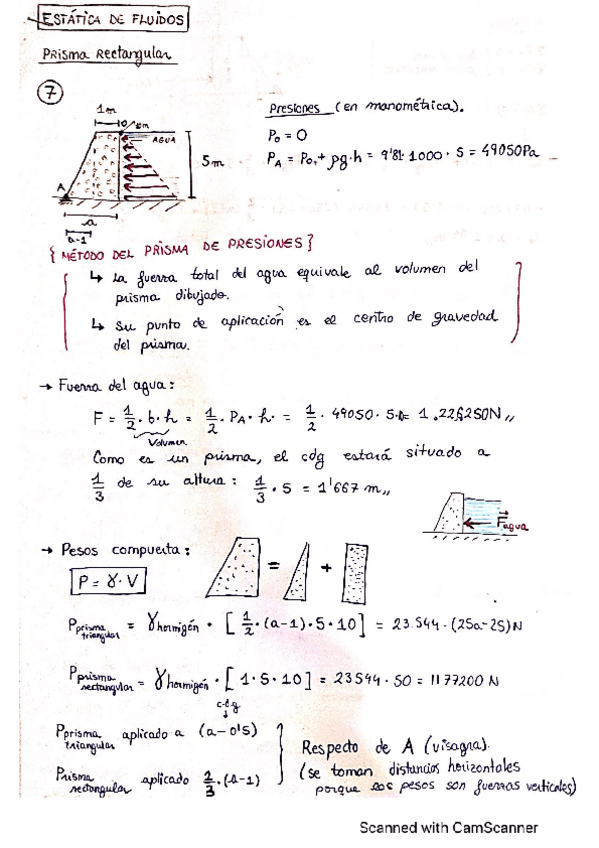 ESTÁTICA DE FLUIDOS
PRISMA RECTANGULAR
7
1m
AGUA
5m
A
a
a-1
Presiones (en manométrica).
P₀ = 0
P_A = P₀ + ρg·h = 9'81·1000·5 = 49050Pa
{MÉTODO DEL PRISMA DE PRESIONES}
↳ La fuerza total del agua equivale al volumen del
prisma dibujado.
↳ Su punto de aplicación es el centro de gravedad
del prisma.
→ Fuerza del agua:
F = 1/2 · b · h = 1/2 · P_A · h · = 1/2 · 49050 · 5 · = 1.226250N
Volumen
Como es un prisma, el cdg estará situado a
1/3 de su altura: 1/3 · 5 = 1'667 m
F agua
→ Pesos compuerta:
= +
P = γ·V
P prisma triangular = γ hormigón · [1/2 · (a-1) · 5 · 10] = 23.544 · (25a-25)N
P prisma rectangular = γ hormigón · [1·5·10] = 23544 · 50 = 1177200 N
c.d.g
↓
P prisma triangular aplicado a (a-0'5)
Prisma rectangular aplicado 2/3 · (a-1)
Respecto de A (visagra).
(se toman distancias horizontales
porque los pesos son fuerzas verticales)
Scanned with CamScanner